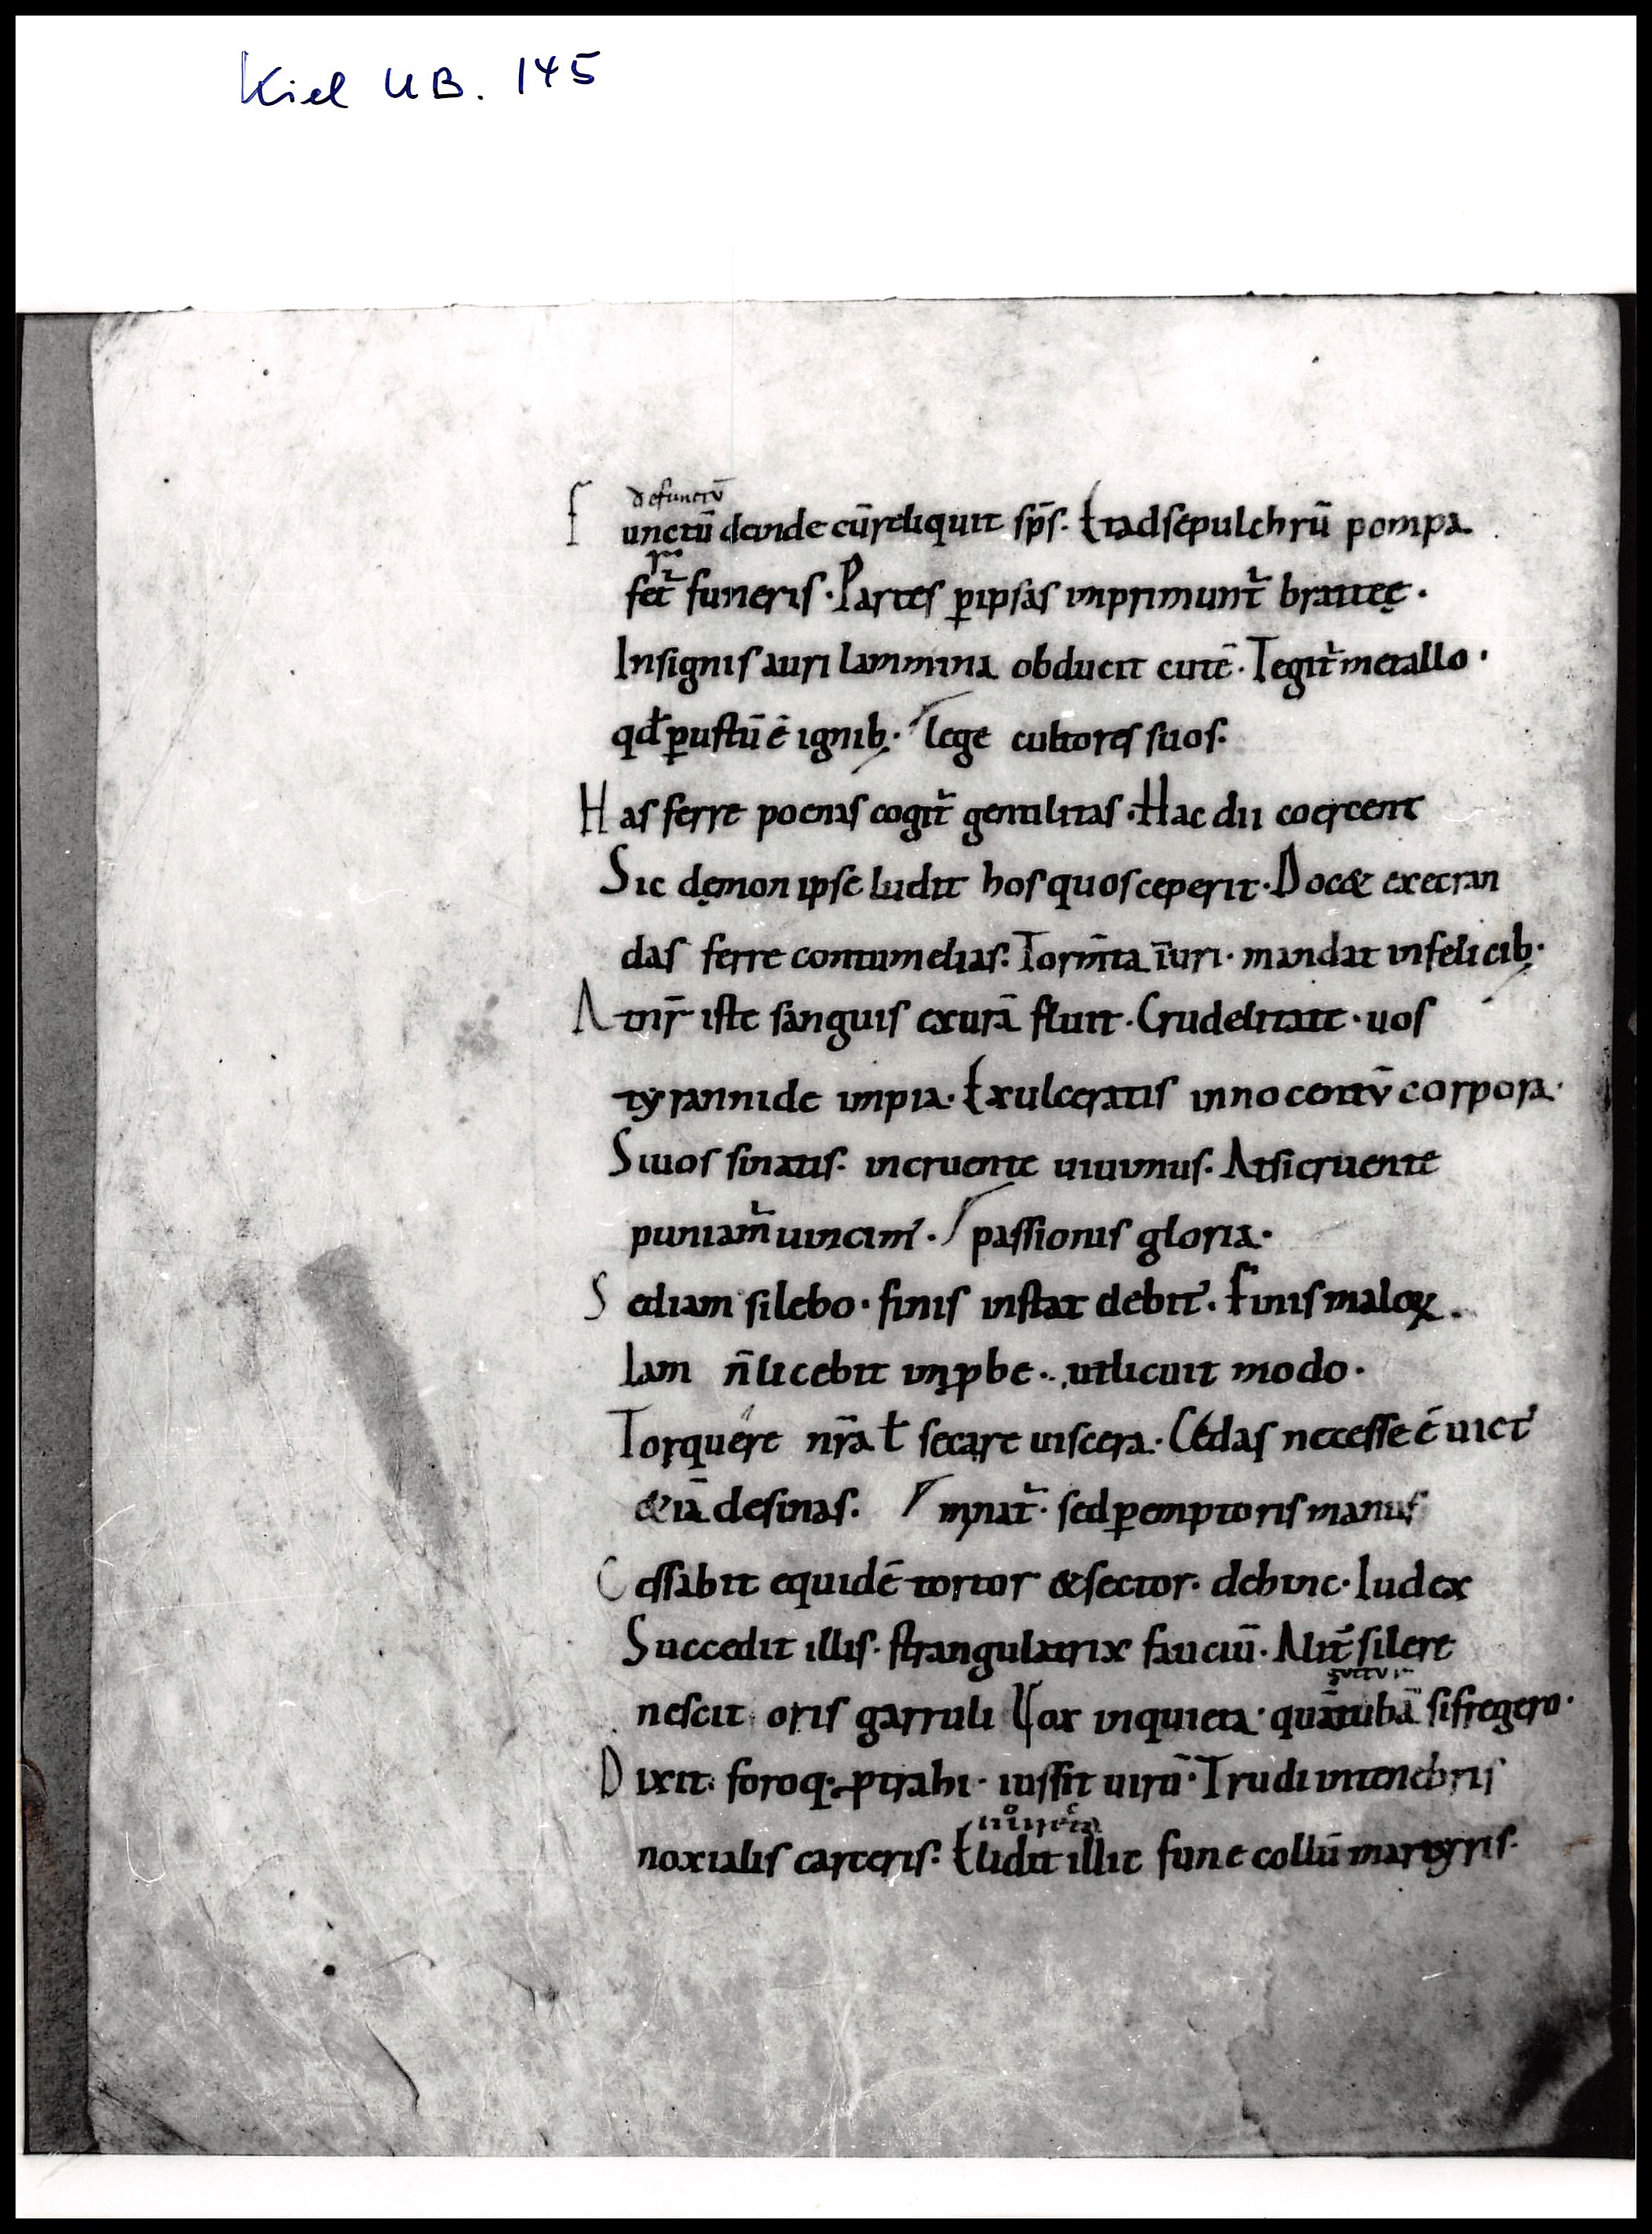 Kiel UB. 145
defunctū
Functū deinde cū reliquit sp̄s. Et ad sepulchrū pompa
fet̄ funeris. Partes ꝑ ipsas inprimunt̄ bratteę.
Insignis auri lammina obducit cutē. Tegit̄ metallo.
qđ ꝑustū ē ignib; lege cultores suos.
Has ferre poenas cogit̄ gentilitas. Hac dii coercent
Sic dęmon ipse ludit hos quos ceperit. Docet & execran
das ferre contumelias. Torm̄ta īuri. mandat infelicib;
At nr̄ iste sanguis ex urā fluit. Crudelitate. uos
tyrannide impia. Exulceratis innocentū corpora.
Si uos sinatis. incruente uiuimus. At si cruente
puniam̄ uincim'. passionis gloria.
Sed iam silebo. finis instat debit'. Finis maloꝝ.
Iam n̄ licebit inꝓbe. ut licuit modo.
Torquere nr̄a ł secare uiscera. Cedas necesse ē uict'
& iā desinas. minat̄. sed ꝑemptoris manus
Cessabit equidē tortor & sector. dehinc. Iudex
Succedit illis. strangulatrix fauciū. Alit̄ silere
guttur
nescit oris garruli Vox inquieta. quā tubā si fregero.
Dixit. foroq; ꝓtrahi. iussit uirū. Trudi in tenebris
noxialis carceris. Elidit illic fune collū martyris.